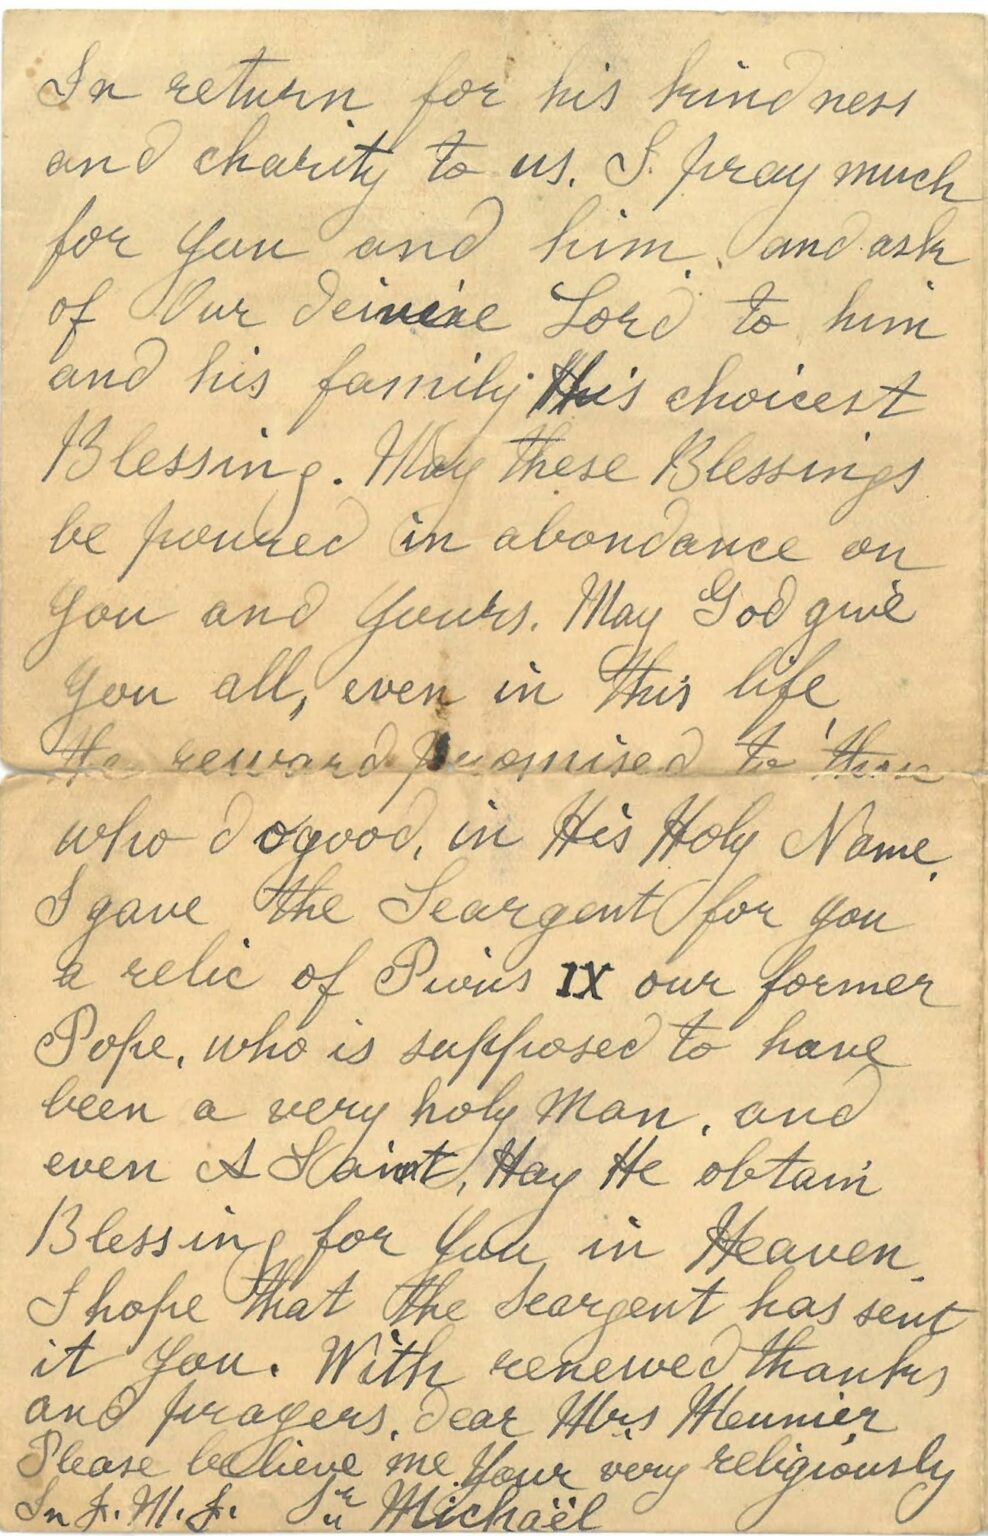 In return for his kindness
and charity to us. I pray much
for you and him, and ask
of Our deivine Lord to him
and his family this choicest
Blessing. May these Blessings
be poured in abondance on
you and yours. May God give
you all, even in this life,
the reward promised to those
who do good, in His Holy Name.
I gave the Seargent for you
a relic of Pivus IX our former
Pope, who is supposed to have
been a very holy man, and
even A Saint, May He obtain
Blessing for you in Heaven.
I hope that the seargent has sent
it you. With renewed thanks
and prayers, dear Mrs Meunier
Please believe me your very religiously
In J. M. J. Sr Michaël